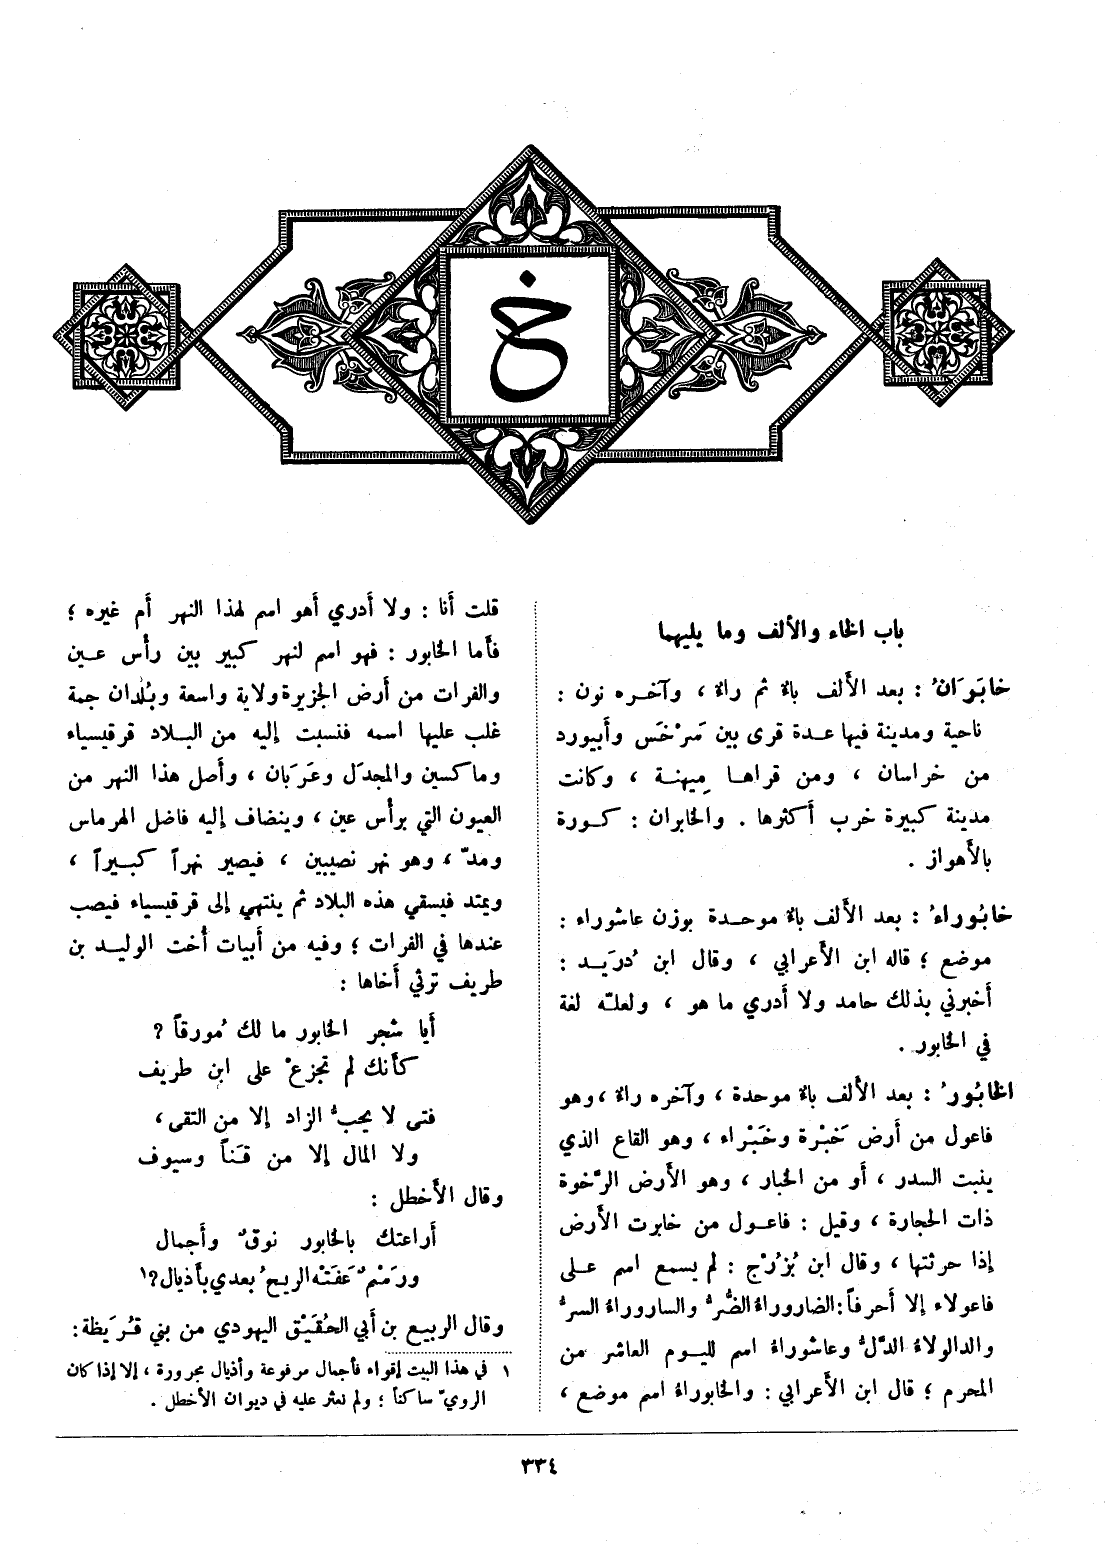 خ
باب الخاء والألف وما يليهما
خابَوَرَانُ : بعد الألف باءٌ ثم راءٌ ، وآخـره نون :
ناحية ومدينة فيها عـدة قرى بين سَرْخَس وأبيورد
من خراسان ، ومن قراهـا مِيهنـة ، وكانت
مدينة كبيرة خرب أكثرها . والخابران : كـورة
بالأهواز .
خابُوراءُ : بعد الألف باءٌ موحـدة بوزن عاشوراء :
موضع ؛ قاله ابن الأعرابي ، وقال ابن دُرَيـد :
أخبرني بذلك حامد ولا أدري ما هو ، ولعلّه لغة
في الخابور .
الخابُورُ : بعد الألف باءٌ موحدة ، وآخره راءٌ ، وهو
فاعول من أرض خَبْرة وخَبْراء ، وهو القاع الذي
ينبت السدر ، أو من الخبار ، وهو الأرض الرّخوة
ذات الحجارة ، وقيل : فاعـول من خابرت الأرض
إذا حرثتها ، وقال ابن بُزُرْج : لم يسمع اسم عـلى
فاعولاء إلا أحرفاً: الضاروراءُ الضُّرُّ والساروراءُ السرُّ
والدالولاءُ الدّلُّ وعاشوراءُ اسم لليـوم العاشر من
المحرم ؛ قال ابن الأعرابي : والخابوراءُ اسم موضع ،
قلت أنا : ولا أدري أهو اسم لهذا النهر أم غيره ؛
فأما الخابور : فهو اسم لنهر كبير بين رأس عـين
والفرات من أرض الجزيرة ولاية واسعة وبُلْدان جمة
غلب عليها اسمه فنسبت إليه من البـلاد قرقيسياء
وماكسين والمجدَل وعَرَبان ، وأصل هذا النهر من
العيون التي برأس عين ، وينضاف إليه فاضل الهرماس
ومدّ ، وهو نهر نصيبين ، فيصير نهراً كبـيراً ،
ويمتد فيسقي هذه البلاد ثم ينتهي إلى قرقيسياء فيصب
عندها في الفرات ؛ وفيه من أبيات أُخت الوليـد بن
طريف ترثي أخاها :
أيا شجر الخابور ما لك مُورقاً ؟
كأنك لم تجزعْ على ابن طريف
فتى لا يحبُّ الزاد إلا من التقى ،
ولا المال إلا من قَنـاً وسيوف
وقال الأخطل :
أراعتك بالخابور نوقٌ وأجمال
ورَسْمٌ عَفَتْه الريحُ بعدي بأذيال ؟١
وقال الربيع بن أبي الحُقَيْق اليهودي من بني قُرَيظة:
١ في هذا البيت إقواء فأجمال مرفوعة وأذيال مجرورة ، إلا إذا كان
الرويّ ساكناً ؛ ولم نعثر عليه في ديوان الأخطل .
٣٣٤